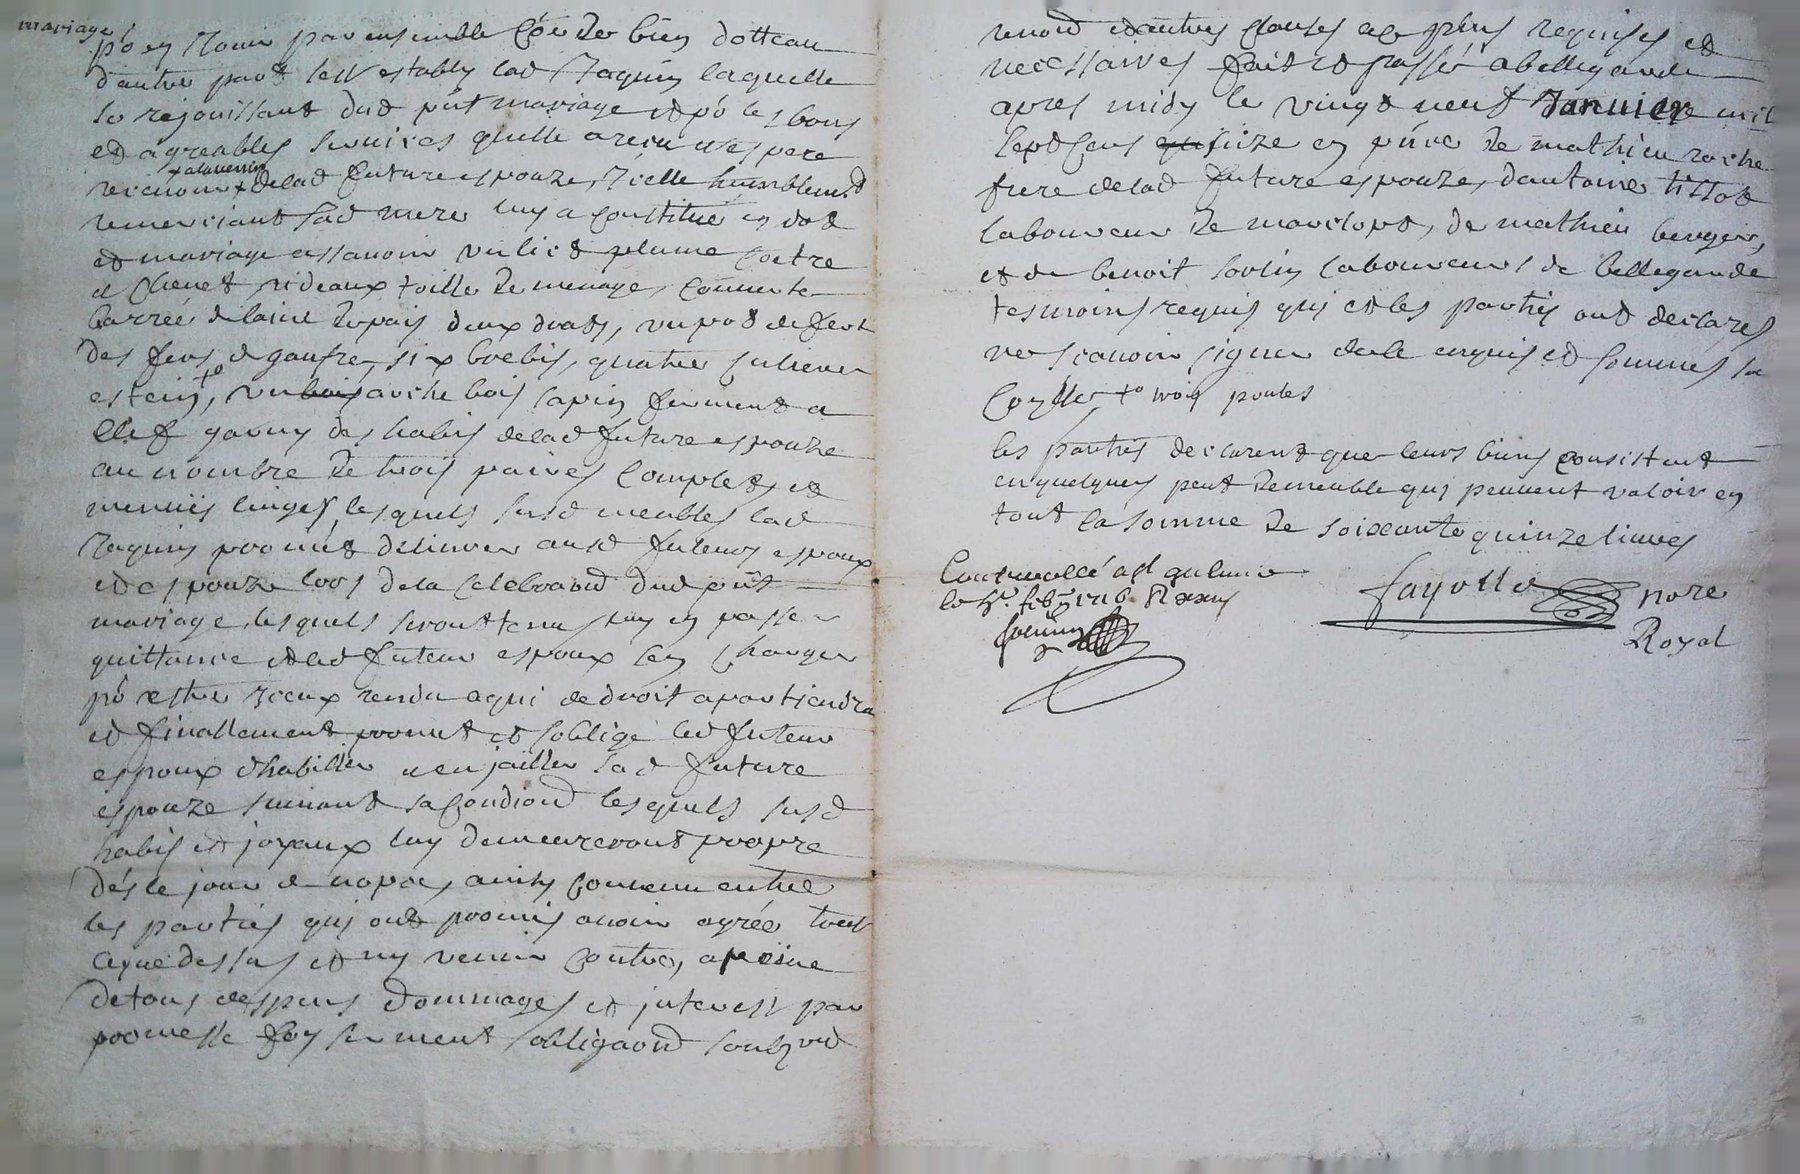 mariage
po en Jouir par ensemble Coe de bien dottcau
d'autre part sest establye lad Jaquin laquelle
se rejouissant dud pnt mariage et po les bons
et agreables services quelle a receu et espere
+ alauenir
recevoir + delad future espouze, Icelle humblemt
remerciant sad mere luy a constitué en dot
et mariage assavoir un lict plume Coetre
et Chevet rideaux toille de menage, Couverte
barrée de laine du pais deux draps, un pot de fert
des fers de gaufre, six brebis, quatre culieres
estein, +° un arche bois sapin fermant a
Clef garny des habis delad future espouze
au nombre de trois paires Complets, et
menuës linges, lesquels susd meubles lad
Jaquin promet délivrer ausd futeurs espoux
et espouze lors de la Celebraond dud pnt
mariage, lesquels seront tenus luy en passer
quittance et led futeur espoux sen Charger
po estre Iceux rendu a qui de droit apartiendra
et finallement promet et soblige led futeur
espoux dhabiller et enjailler sad future
espouze suivant sa Condiond lesquels susd
habis et joyaux luy demeureront propre
dés le jour de nopce, ainsy Convenu entre
les parties qui ont promis avoir agréé tout
ce que dessus et ny venir Contre, a peine
de tous despens dommages et interest par
promesse foy serment obligaond soubz
renond et autres Clauses a ce plus requises et
necessaires fait et passé a bellegarde
apres midy le vingt neuf Janvier mil
sept Cens seize en pnce de mathieu roche
frere delad future espouze, d'antoine tissot
laboureur de marclopt, de mathieu berger,
et de benoit soulin laboureurs de bellegarde
tesmoins requis qui et les parties ont declarés
ne scavoir signer de ce enquis et sommés
+° trois poules
les parties declarent que leurs biens Consistent
en quelques peut de meuble qui peuvent valoir en
tout la somme de soixante quinze livres
Controollé a st galmier
le 4e feb 1716
fayolle nore
Royal